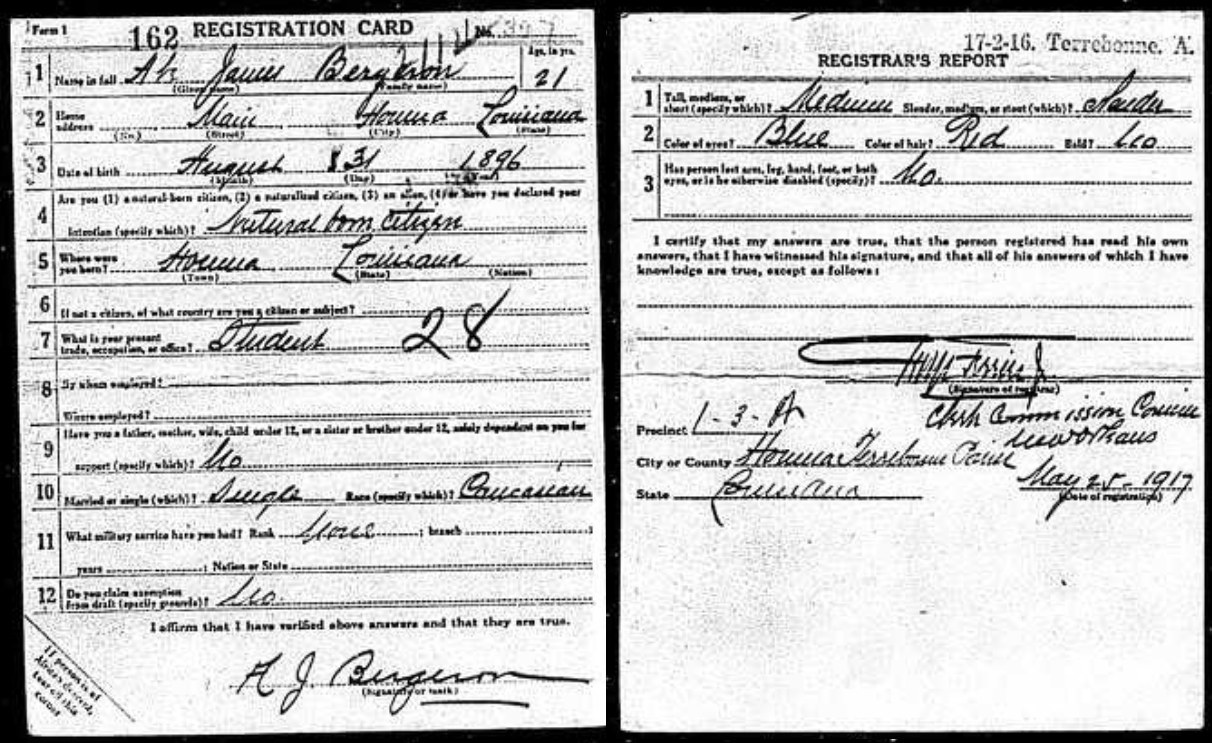 Form 1
162 REGISTRATION CARD No. 327
Age, in yrs.
1 Name in full James Bergeron 21
(Given name) (Family name)
2 Home address Main Houma Louisiana
(No.) (Street) (City) (State)
3 Date of birth August 31 1896
(Month) (Day) (Year)
Are you (1) a natural-born citizen, (2) a naturalized citizen, (3) an alien, (4) or have you declared your
4 intention (specify which)? Natural born citizen
5 Where were you born? Houma Louisiana
(Town) (State) (Nation)
6 If not a citizen, of what country are you a citizen or subject?
7 What is your present trade, occupation, or office? Student 28
8 By whom employed?
Where employed?
9 Have you a father, mother, wife, child under 12, or a sister or brother under 12, solely dependent on you for
support (specify which)? No
10 Married or single (which)? Single Race (specify which)? Caucasian
11 What military service have you had? Rank None ; branch ;
years ; Nation or State
12 Do you claim exemption from draft (specify grounds)? No.
I affirm that I have verified above answers and that they are true.
A J Bergeron
(Signature or mark)
If person is of
African descent,
tear off this
corner
17-2-16. Terrebonne. A.
REGISTRAR'S REPORT
1 Tall, medium, or short (specify which)? Medium Slender, medium, or stout (which)? Slender
2 Color of eyes? Blue Color of hair? Red Bald? No
3 Has person lost arm, leg, hand, foot, or both eyes, or is he otherwise disabled (specify)? No.
I certify that my answers are true, that the person registered has read his own
answers, that I have witnessed his signature, and that all of his answers of which I have
knowledge are true, except as follows:
(Signature of registrar)
Precinct 1-3-
Clerk Commission Council
New Orleans
City or County Houma Terrebonne Parish
State Louisiana May 25 - 1917
(Date of registration)